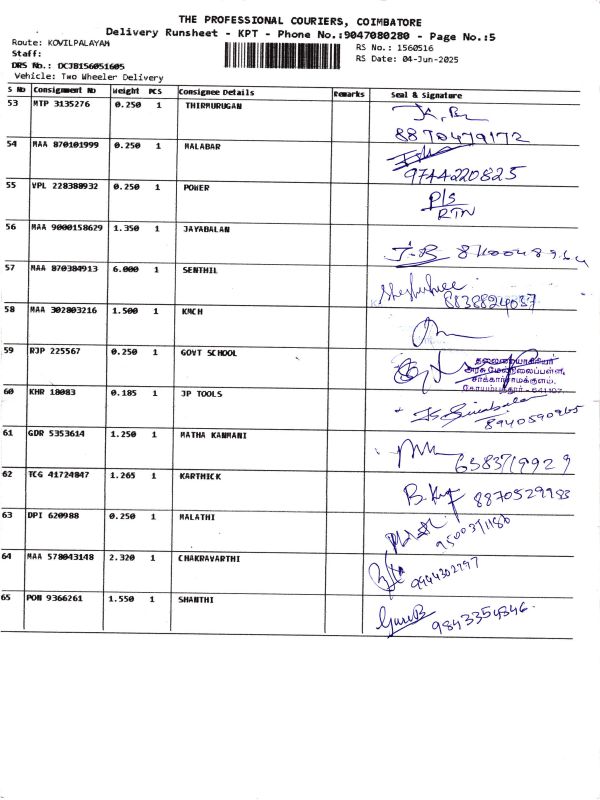 THE PROFESSIONAL COURIERS, COIMBATORE
Delivery Runsheet - KPT - Phone No.:9047080280 - Page No.:5
Route: KOVILPALAYAM
RS No.: 1560516
Staff:
RS Date: 04-Jun-2025
DRS No.: DCJB156051605
Vehicle: Two Wheeler Delivery
S No Consignment No Weight PCS Consignee Details Remarks Seal & Signature
53 MTP 3135276 0.250 1 THIRMURUGAN
8870479172
54 MAA 870101999 0.250 1 MALABAR
9744220825
55 VPL 228380932 0.250 1 POWER P/S
RTN
56 MAA 9000158629 1.350 1 JAYABALAN J.B
57 MAA 870384913 6.000 1 SENTHIL
8838824037
58 MAA 302803216 1.500 1 KMCH
59 RJP 225567 0.250 1 GOVT SCHOOL தலைமையாசிரியர்
அரசு மேல்நிலைப்பள்ளி,
சர்க்கார்சாமக்குளம்,
கோயம்புத்தூர் - 641107
60 KHR 18083 0.185 1 JP TOOLS
8940590965
61 GDR 5353614 1.250 1 MATHA KANMANI
6383719929
62 TCG 41724847 1.265 1 KARTHICK
8870529983
63 DPI 620988 0.250 1 MALATHI
9500371186
64 MAA 578043148 2.320 1 CHAKRAVARTHI
9944302797
65 PON 9366261 1.550 1 SHANTHI
9843354846.